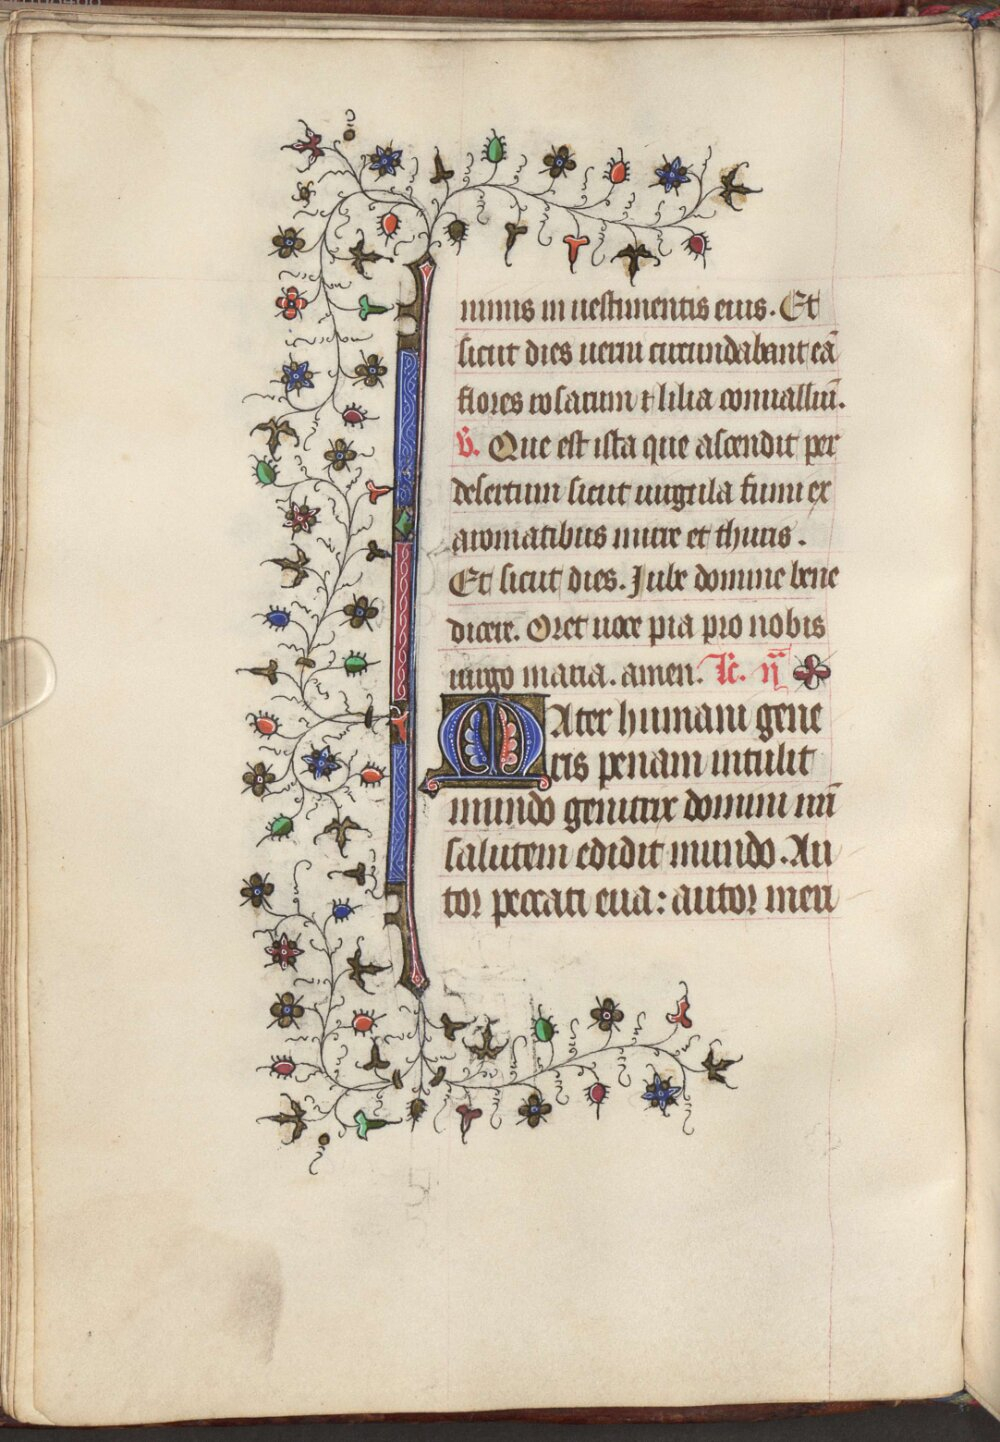 nimis in uestimentis eius. Et
sicut dies uerni circundabant eā
flores rosarum ⁊ lilia conualliū.
v̄. Que est ista que ascendit per
desertum sicut uirgula fumi ex
aromatibus mirre et thuris.
Et sicut dies. Iube domine bene
dicere. Oret uoce pia pro nobis
uirgo maria. amen. Lc. ij
Mater humani gene
ris penam intulit
mundo genitrix domini nrī
salutem edidit mundo. Au
tor peccati eua: autor meri